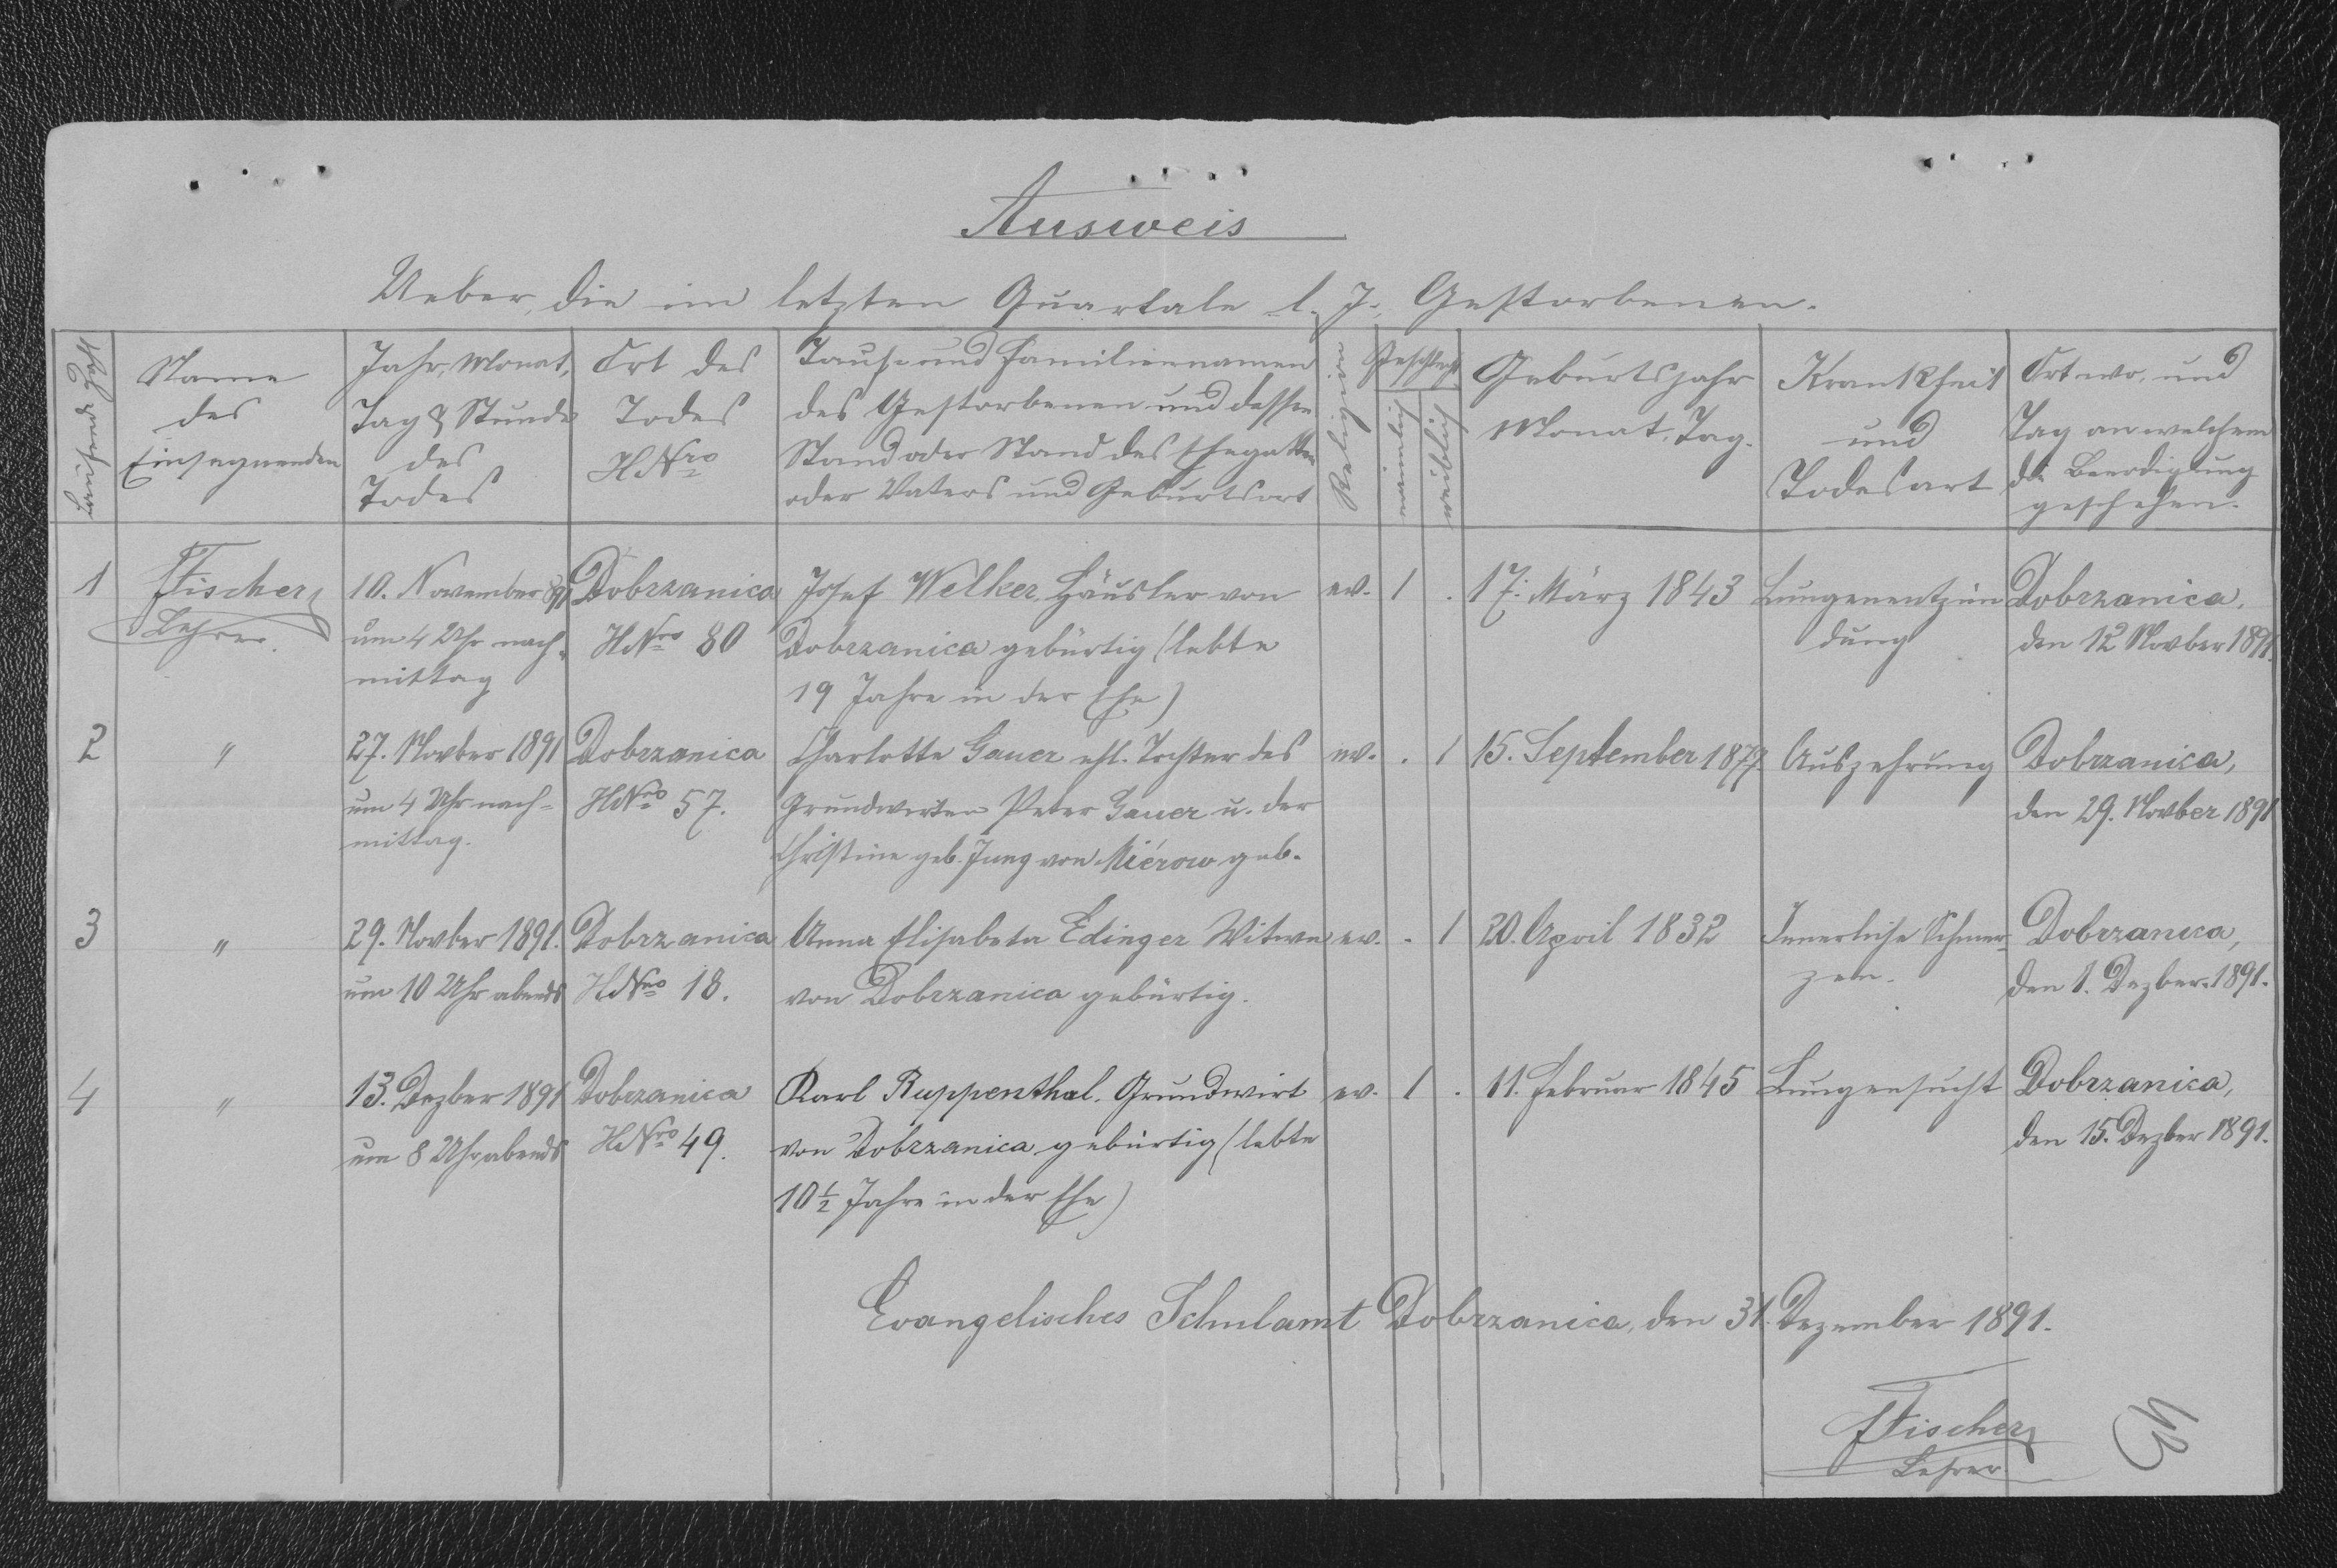 Ausweis
Ueber die im letzten Quartale l. J. Gestorbenen.
Laufende Zahl
Name
des
Einsegnenden
Jahr, Monat,
Tag & Stunde
des
Todes
Ort des
Todes
HNro
Tauf= und Familiennamen
des Gestorbenen und dessen
Stand oder Stand des Ehegatten
oder Vaters und Geburtsort
Religion
Geschlecht
männlich
weiblich
Geburtsjahr
Monat, Tag.
Krankheit
und
Todesart
Ort wo, und
Tag an welchem
die Beerdigung
geschehen.
1
Fischer
Lehrer.
10. November 891
um 4 Uhr nach=
mittag
Dobrzanica
HNro 80
Josef Welker Häusler von
Dobrzanica gebürtig (lebte
19 Jahre in der Ehe)
ev.
1
.
17. März 1843
Lungenentzün
dung
Dobrzanica,
den 12 Novber 1891.
2
"
27. Novber 1891
um 4 Uhr nach=
mittag.
Dobrzanica
HNro 57.
Charlotte Gauer ehl. Tochter des
Grundwirten Peter Gauer u. der
Christine geb. Jung von Miérow geb.
ev.
.
1
15. September 1877.
Auszehrung
Dobrzanica,
den 29. Novber 1891
3
"
29. Novber 1891.
um 10 Uhr abends
Dobrzanica
HNro 18.
Anna Elisabeta Edinger Witwe
von Dobrzanica gebürtig.
ev.
.
1
20. April 1832
Innerliche Schmer=
zen.
Dobrzanica,
den 1. Dezber. 1891.
4
"
13. Dezber 1891
um 8 Uhr abends
Dobrzanica
HNro 49.
Karl Ruppenthal, Grundwirt
von Dobrzanica gebürtig (lebte
10 1/2 Jahre in der Ehe)
ev.
1
.
11. Februar 1845
Lungensucht
Dobrzanica,
den 15. Dezber 1891.
Evangelisches Schulamt Dobrzanica, den 31. Dezember 1891.
Fischer
Lehrer.